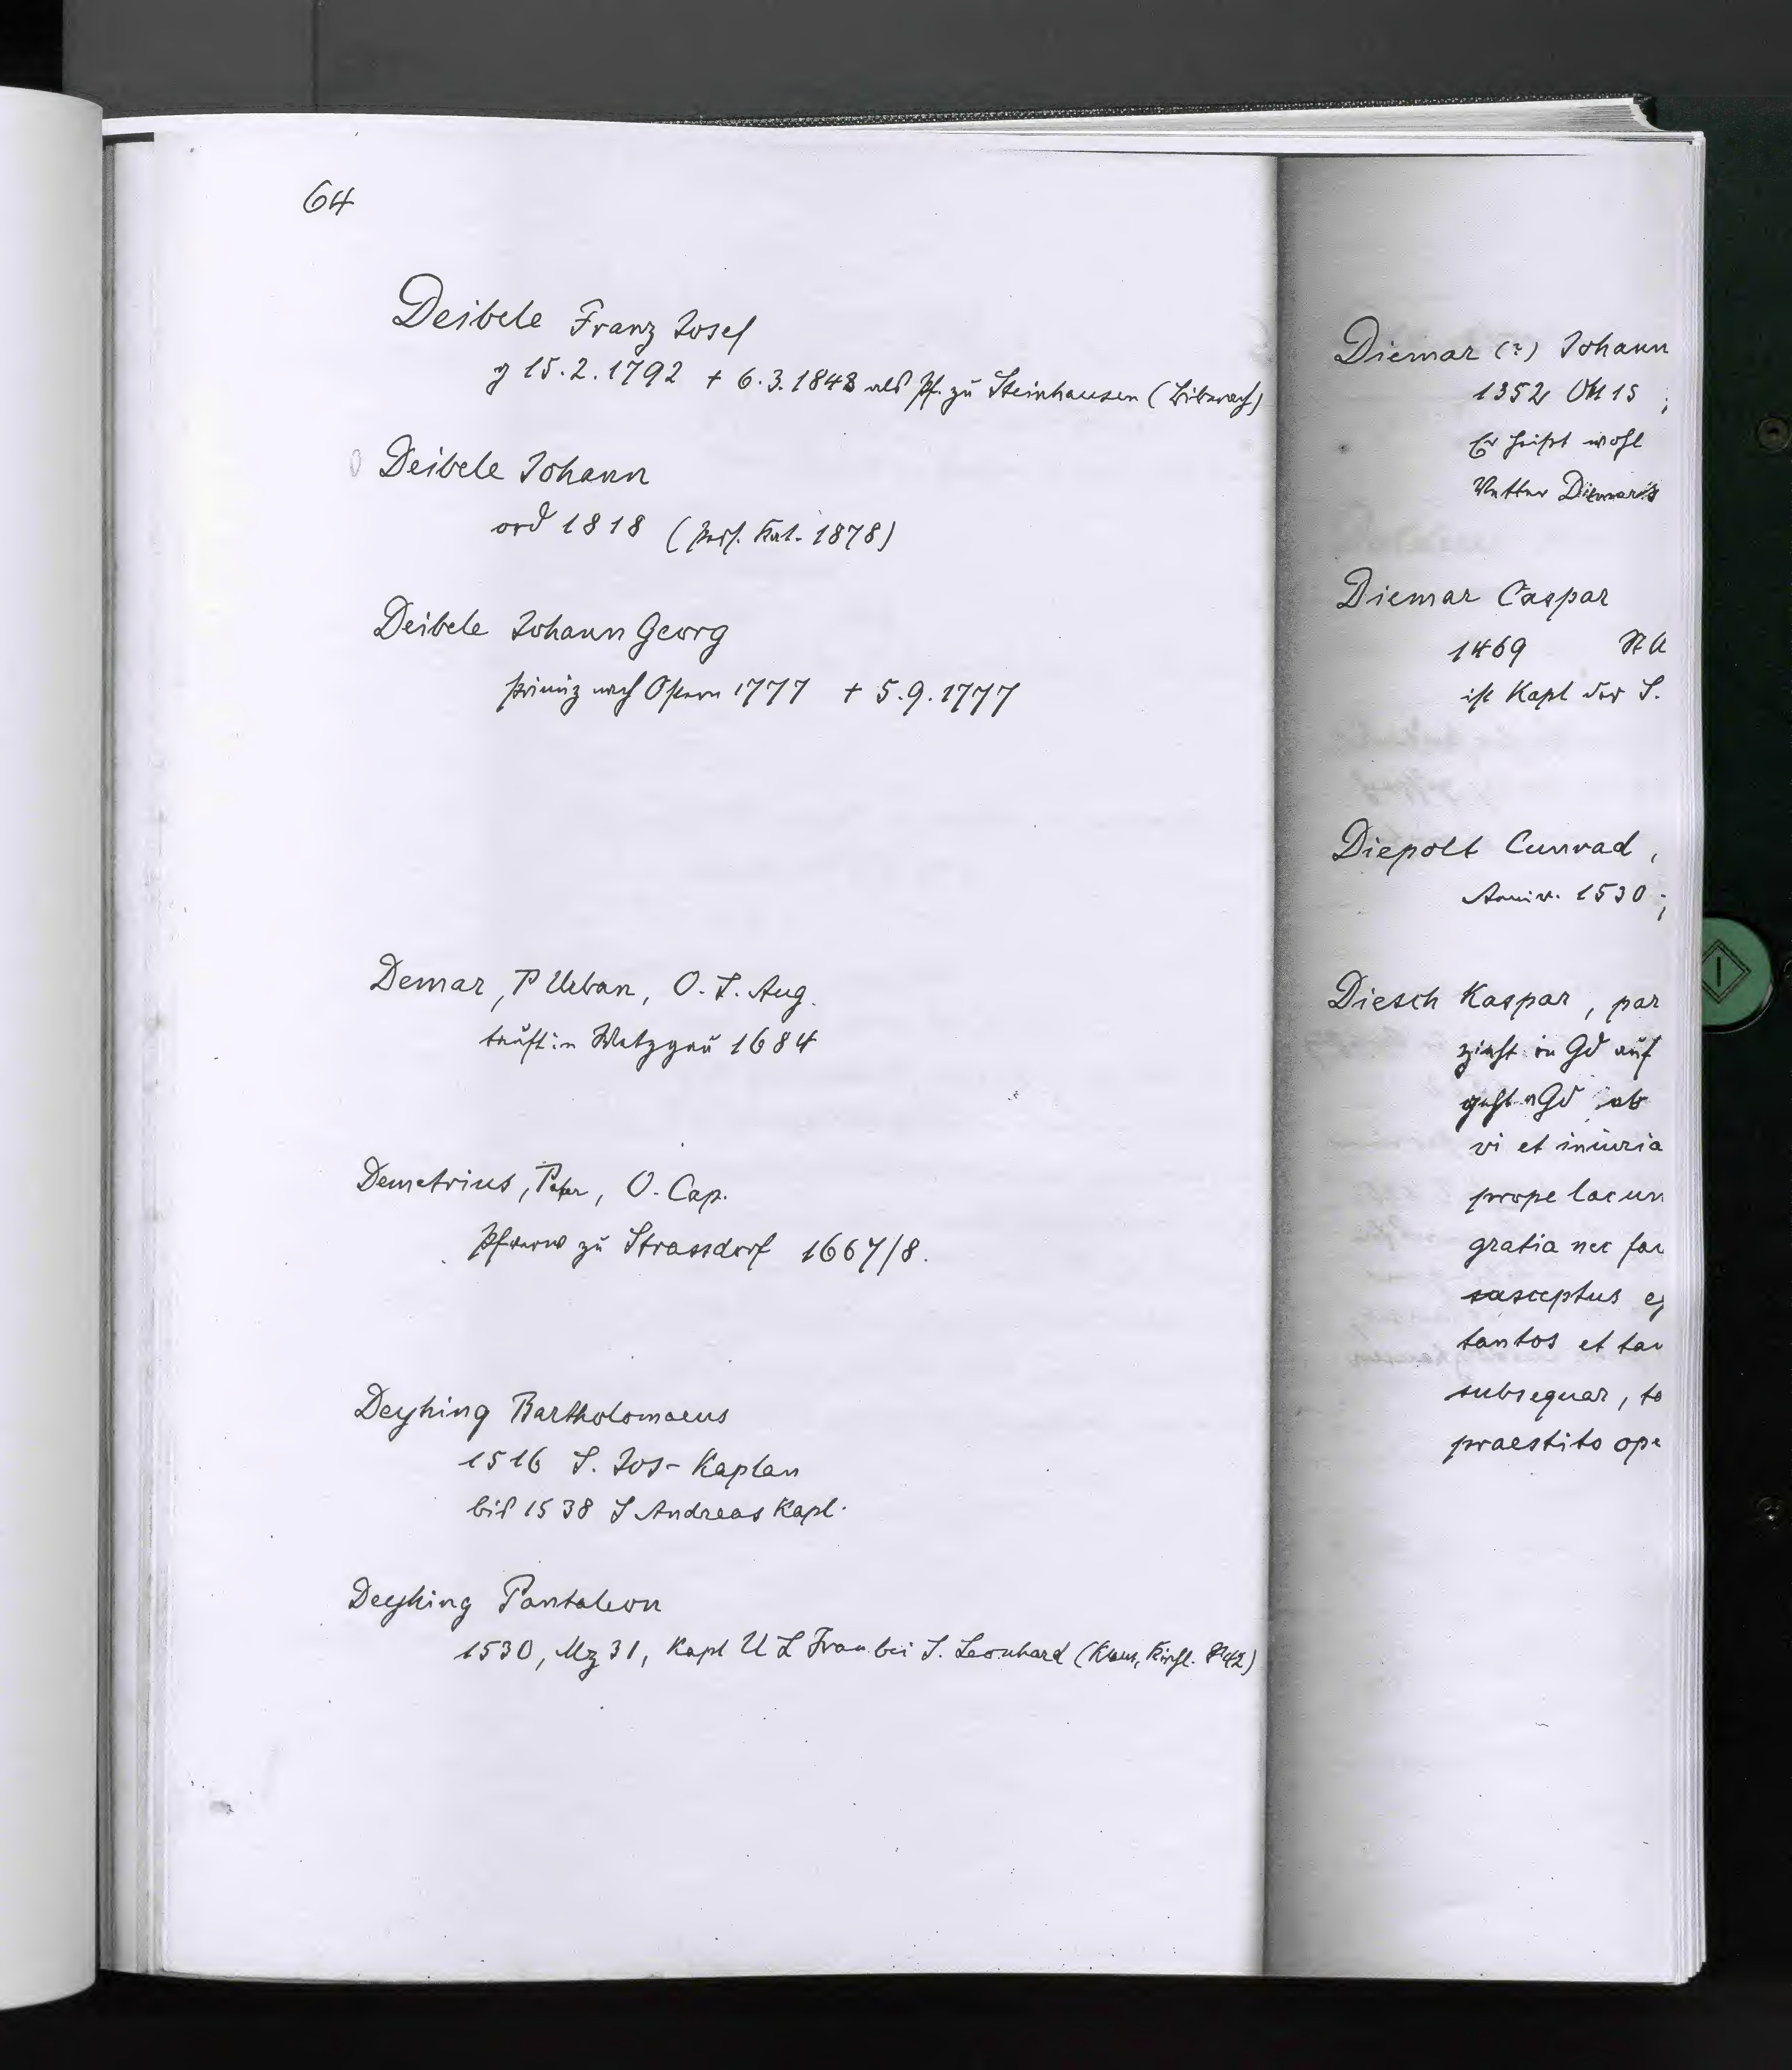 64
Deibele Franz Josef
g 15.2.1792 + 6.3.1848 als Pf. zu Steinhausen (Biberach)
Deibele Johann
ord 1818 (Pers. Kat. 1878)
Deibele Johann Georg
Primiz nach Ostern 1777 + 5.9.1777
Demar, P Urban, O. S. Aug.
tauft in Wetzgau 1684
Demetrius, Pater, O. Cap.
Pfverw zu Strassdorf 1667/8.
Deyhing Bartholomaeus
1516 S. Jos-Kaplan
bis 1538 S Andreas Kapl.
Deyhing Pantaleon
1530, Mz 31, Kapl U L Frau bei S. Leonhard (Klaus, Kirchl.
Diemar (?) Johann
1352 OA 15 ;
Er heißt wohl
Vetter Diemar's
Diemar Caspar
1469 St A
ist Kapl der S.
Diepolt Cunrad,
Anniv. 1530 ;
Diesch Kaspar, par
zieht in Gd auf
geht v Gd ab
vi et iniuria
prope lacun
gratia nec fac
susceptus
tantos et tan
subsequar, to
praestito ope